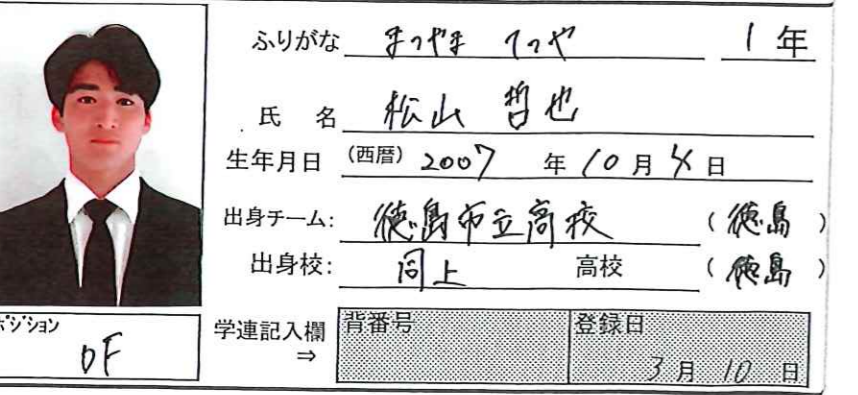 ふりがな まつやま てつや 1年
氏 名 松山 哲也
生年月日 (西暦) 2007 年 10 月 4 日
出身チーム: 徳島市立高校 (徳島)
出身校: 同上 高校 (徳島)
ポジション
DF
学連記入欄 ⇒
背番号
登録日
3月 10 日